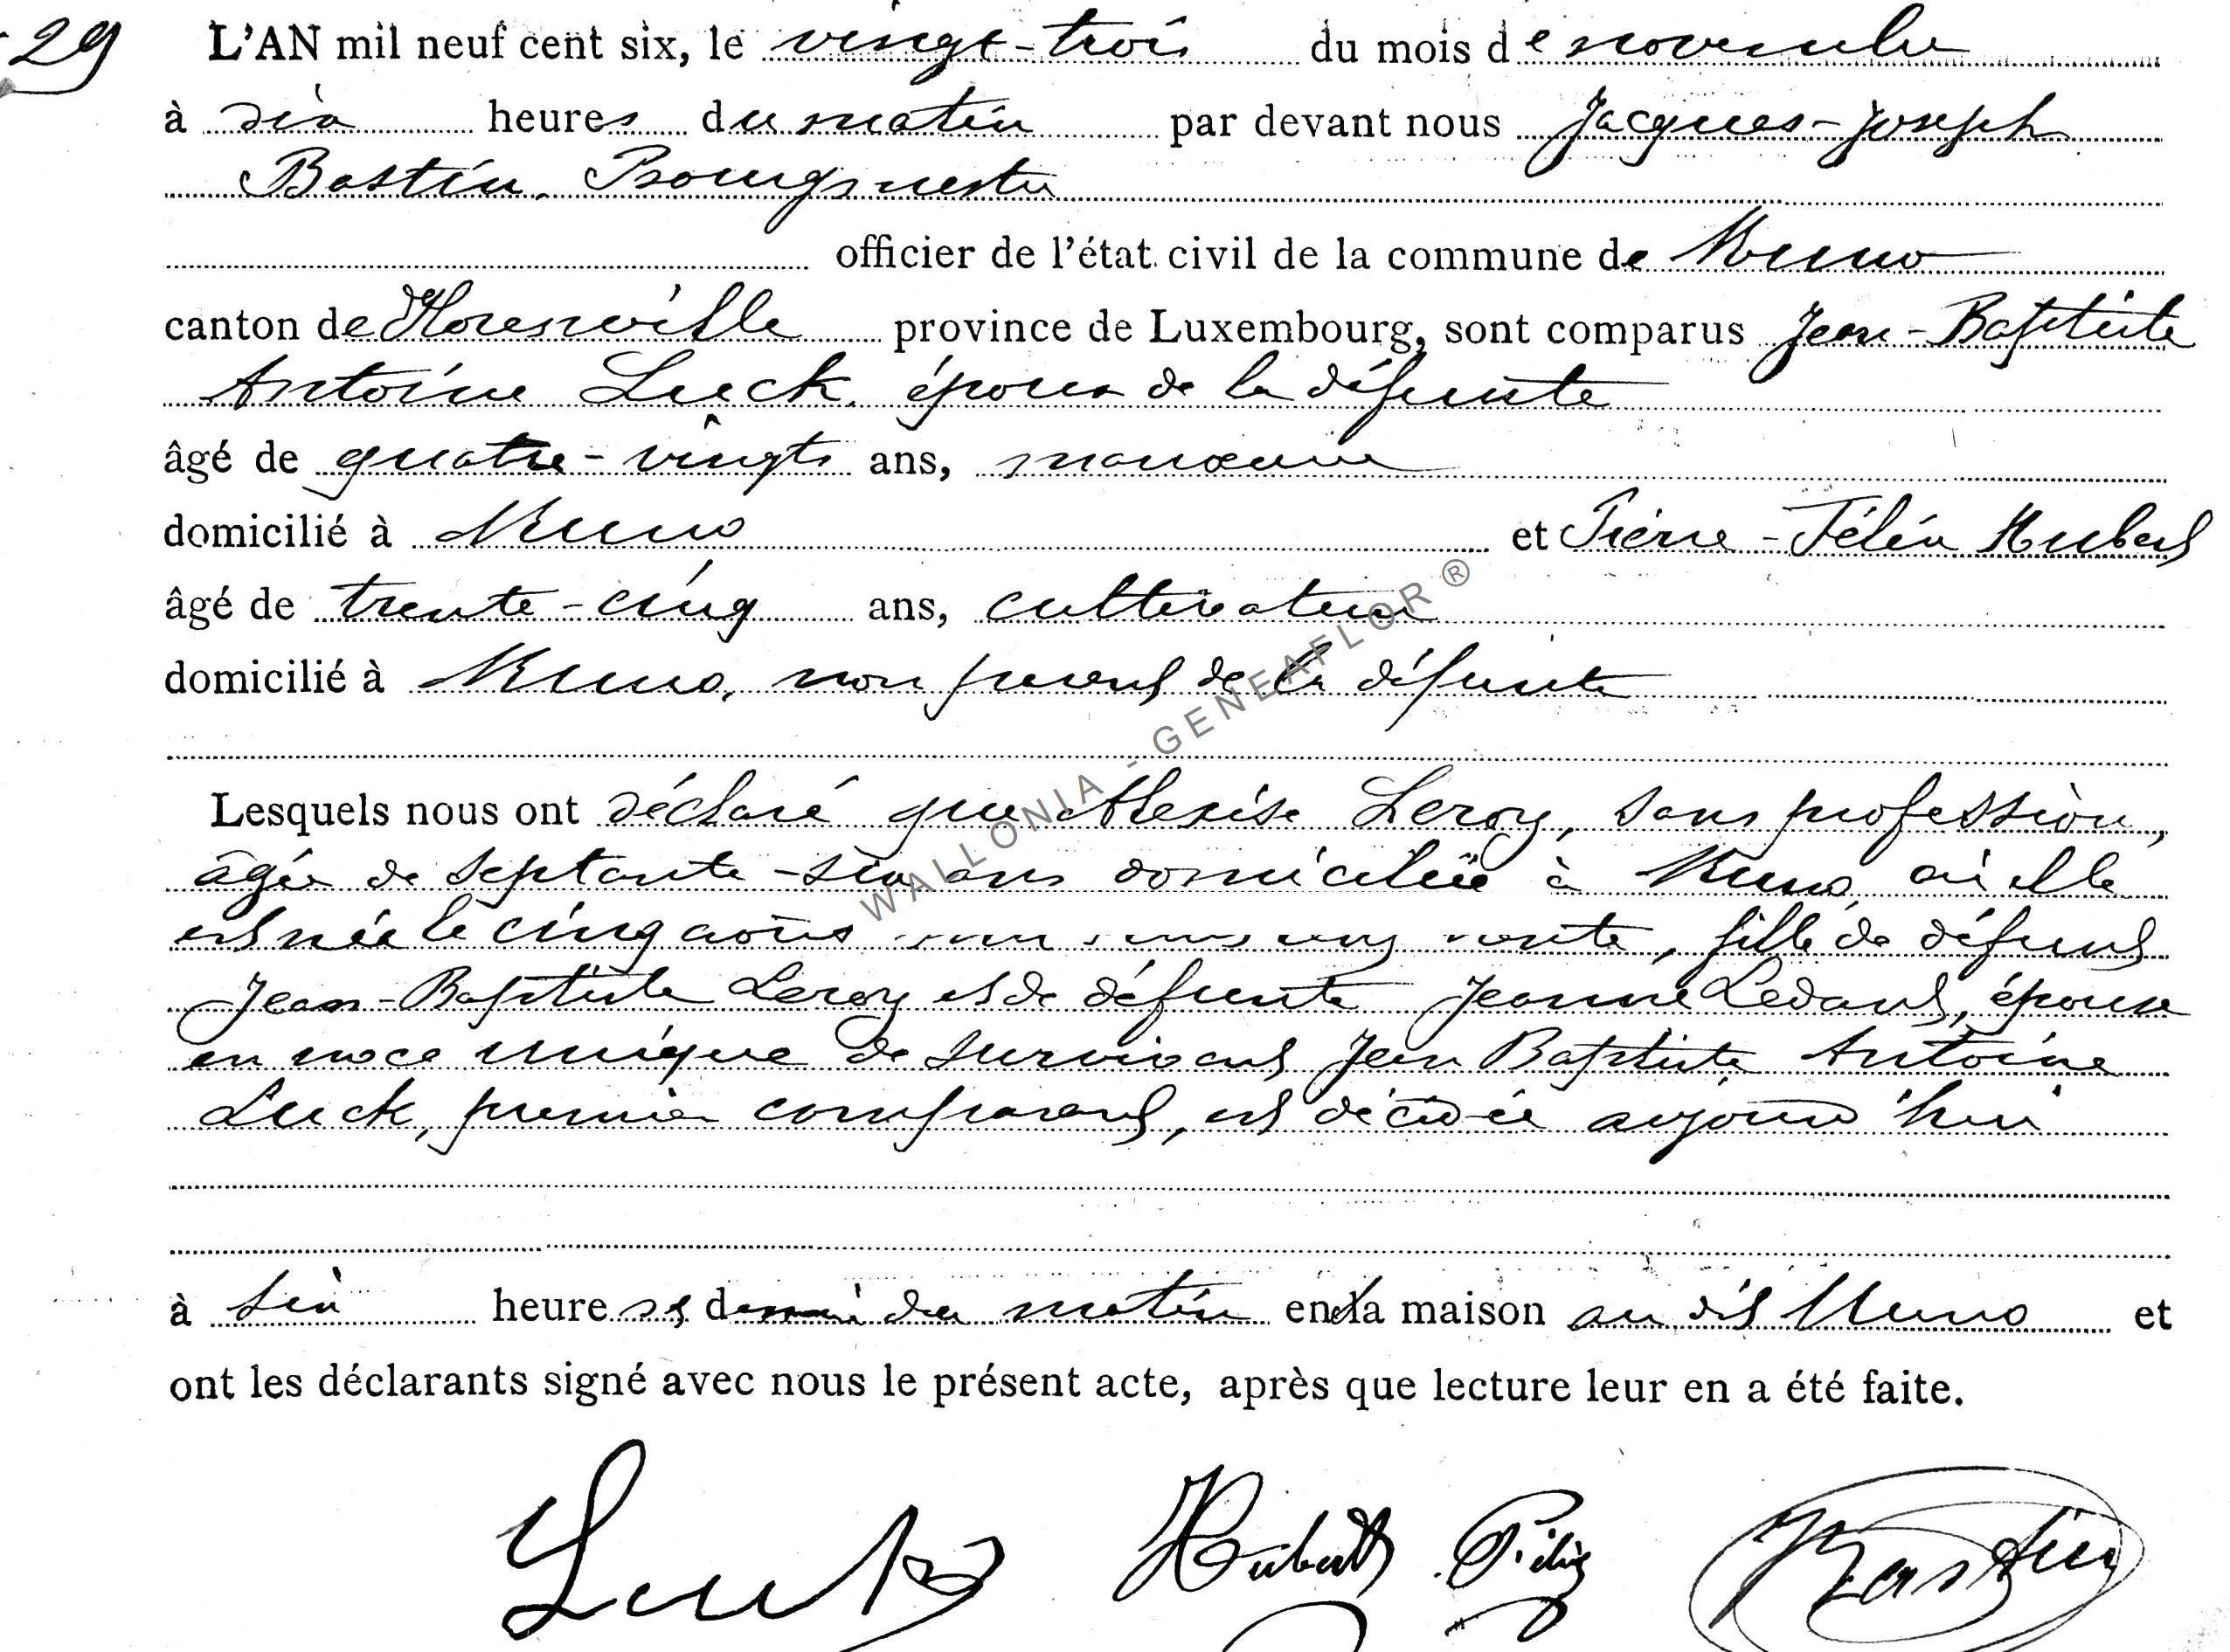 29
L'AN mil neuf cent six, le vingt-trois du mois de novembre
à dix heures du matin par devant nous Jacques-Joseph
Bastin, Bourgmestre
officier de l'état civil de la commune de Muno
canton de Florenville province de Luxembourg, sont comparus Jean-Baptiste
Antoine Luck, époux de la défunte
âgé de quatre-vingts ans, manœuvre
domicilié à Muno et Pierre-Félix Hubert
âgé de trente-cinq ans, cultivateur
domicilié à Muno, non parent de la défunte
Lesquels nous ont déclaré que Alexise Leroy, sans profession,
âgée de septante-six ans domiciliée à Muno, où elle
est née le cinq août trente, fille de défunt
Jean-Baptiste Leroy et de défunte Jeanne Ledant, épouse
en noce unique de survivant Jean Baptiste Antoine
Luck, premier comparant, est décédée aujourd'hui
à six heures et demi du matin en la maison au dit Muno et
ont les déclarants signé avec nous le présent acte, après que lecture leur en a été faite.
Luck Hubert Félix Bastin
WALLONIA - GENEAFLOR ®